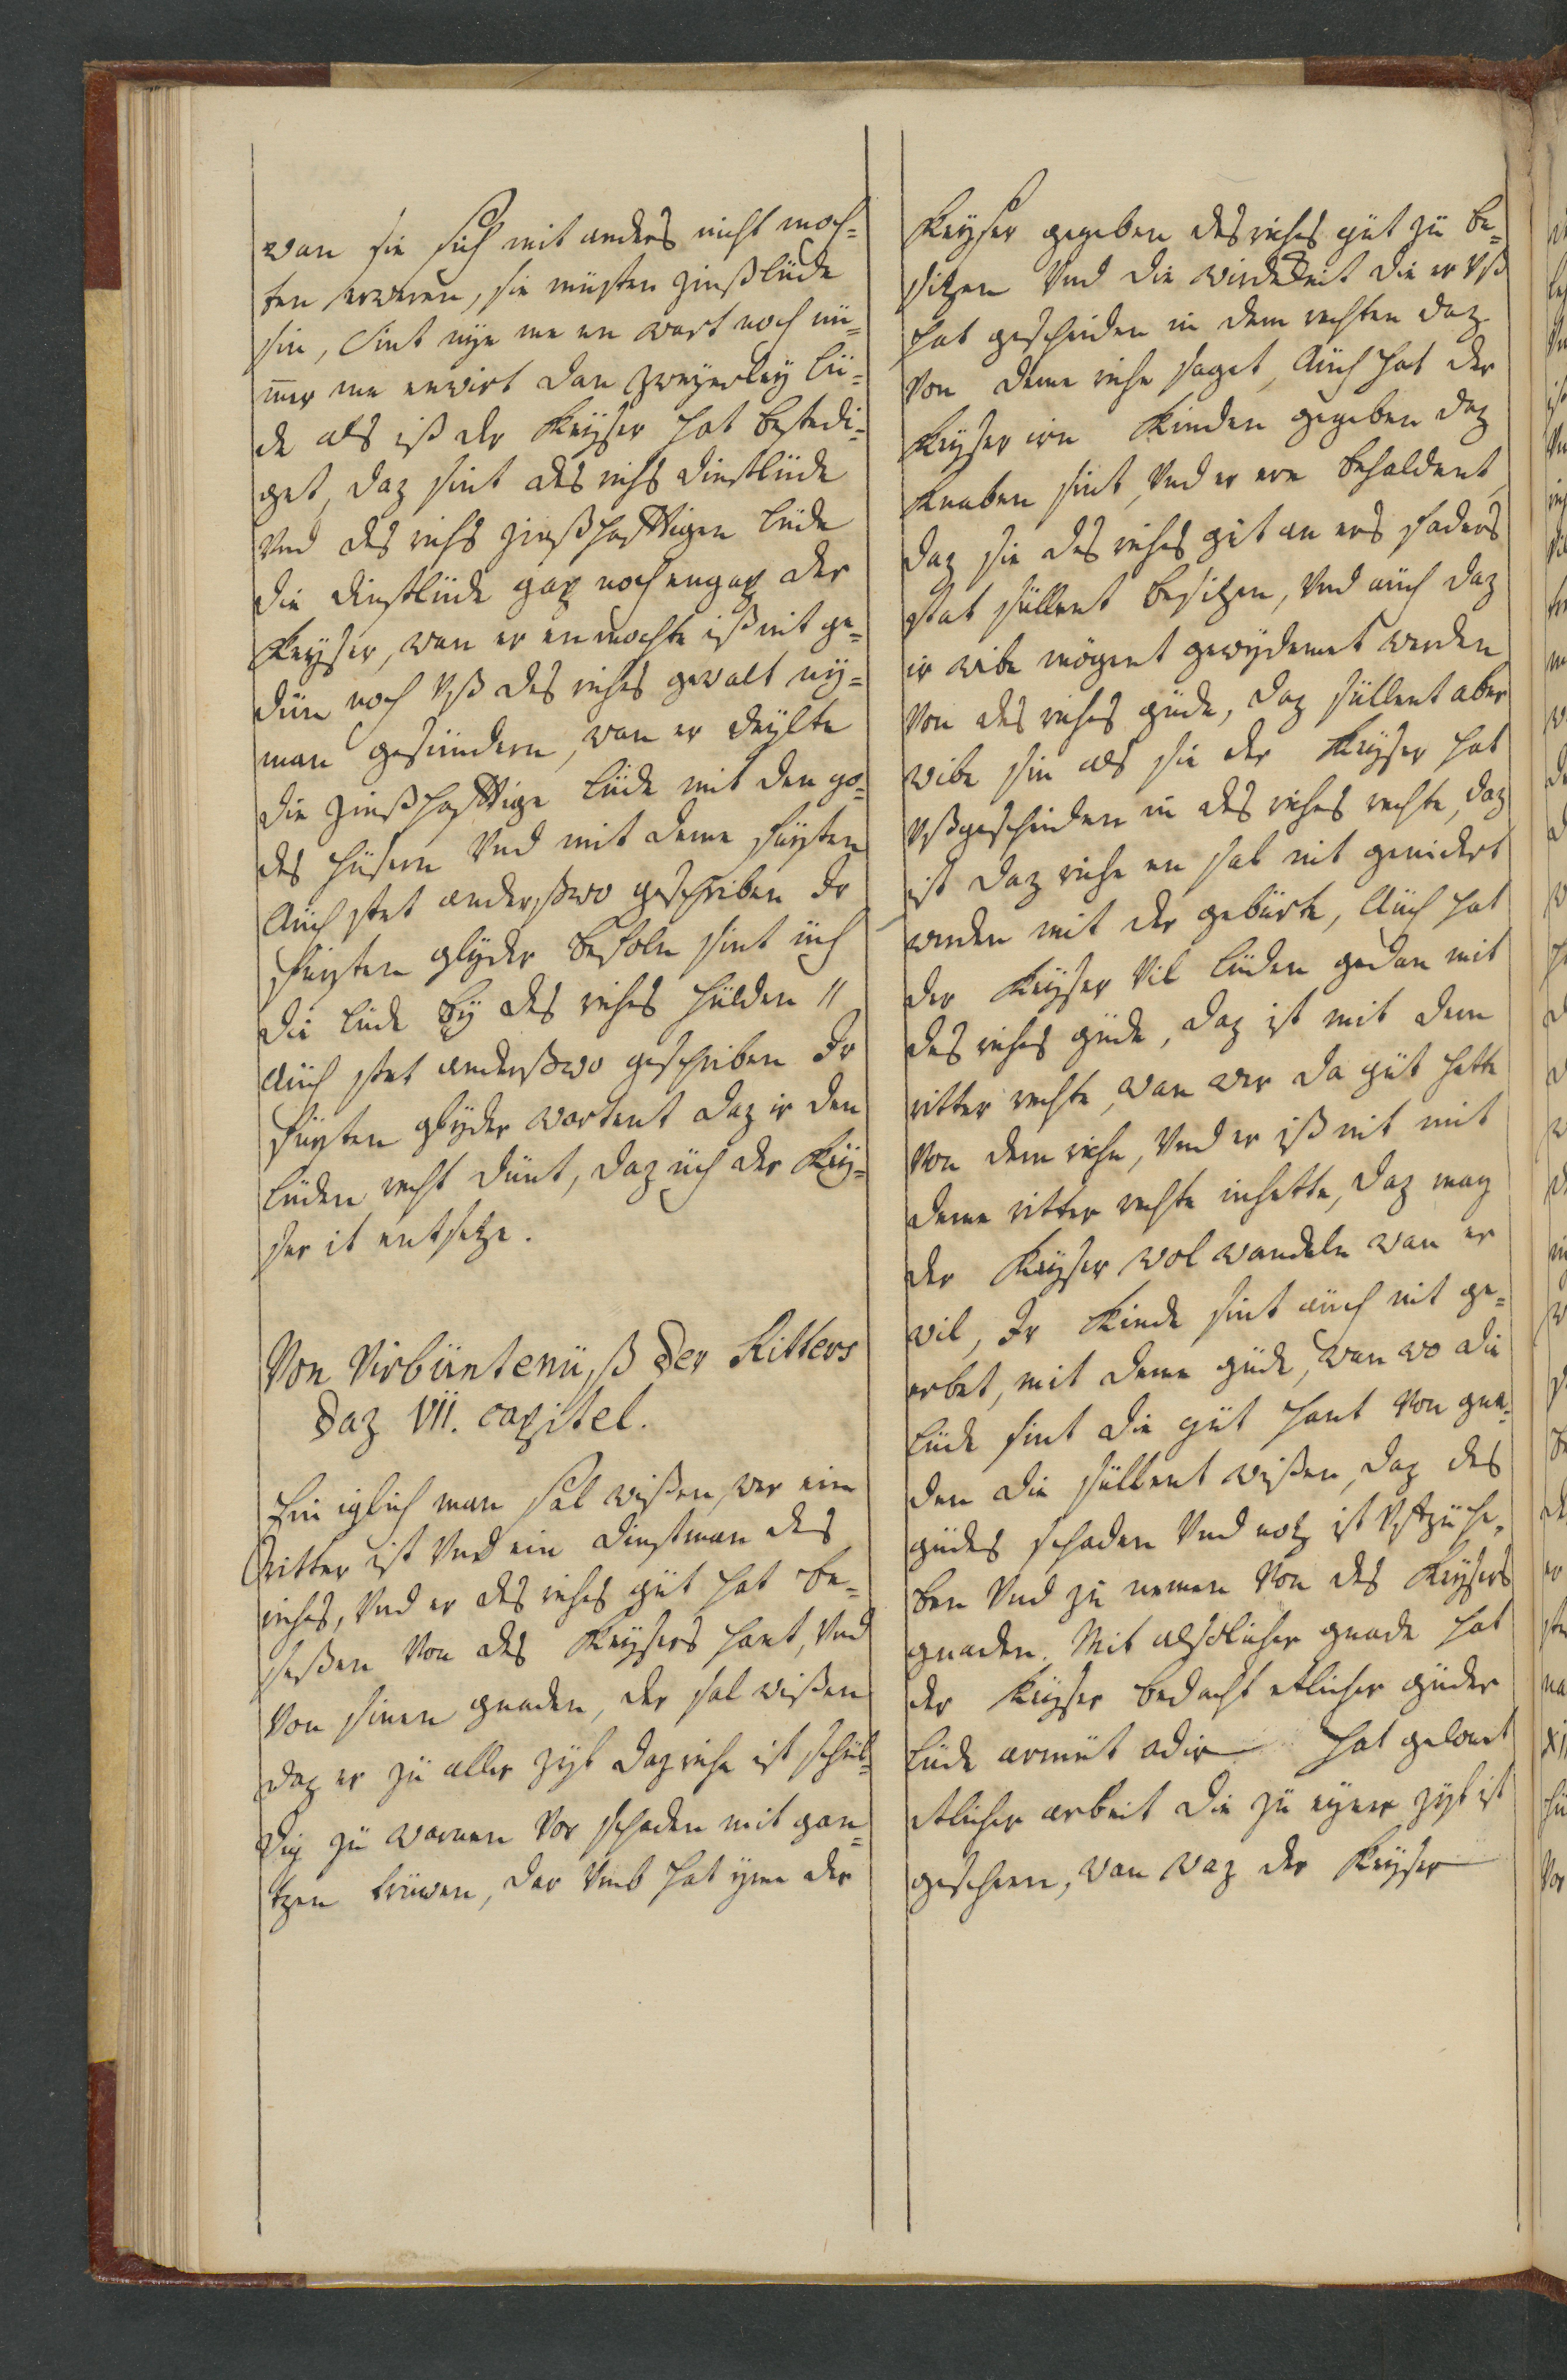 wan sie sich mit anders nicht moch-
ten erweren, sie müsten zinßlüde
sin, Sint nye me en wart noch nü-
mer me enwirt dan zweyerley lü-
de als iß der Keyser hat bestedi-
get, daz sint des richs dinstlüde
Vnd des richs zinßhafftigen lüde
die dinstlüde gap noch engap der
Keyser, wan er en mochte iß nit ge-
dün noch Vß des riches gewalt ny-
man gesündern, wan er deylte
die zinßhafftige lüde mit den go-
des hüsern Vnd mit deme fürsten
Auch stet anderßwo geschriben Ir
fürsten glyder befoln sint üch
die lüde by des riches hülden //
Auch stet anderßwo geschriben Ir
fürsten glyder wartent daz ir den
lüden recht dünt, daz üch der Key-
ser it entsetze.
Von Virbüntenüß der Ritters
daz VII. capitel.
Ein iglich man sal wißen, wer ein
Ritter ist Vnd ein dinstman des
riches, Vnd er des riches güt hat be-
seßen Von des Keysers hant, Vnd
Von sinen gnaden, der sal wißen
daz er zü aller zyt daz riche ist schül-
dig zü warnen Vor schaden mit gan-
tzen trüwen, dar Vmb hat yme der
Keyser gegeben des riches güt zü be-
sitzen Vnd die wirdekeit die er Vß
hat gescheiden in dem rechten daz
Von deme riche saget, Auch hat der
Keyser irn Kinden gegeben daz
Knaben sint, Vnd er ere behaldent,
daz sie des riches güt an irs faders
stat süllent besitzen, Vnd auch daz
ir wibe mögent gewydemet werden
Von des riches güde, daz süllent aber
wibe sin als sie der Keyser hat
Vßgescheiden in des riches rechte, daz
ist daz riche en sal nit genidert
werden mit der gebürte, Auch hat
der Keyser Vil lüden gedan mit
des riches güde, daz ist mit dem
ritter rechte, wan wer da güt hette
Von dem riche, Vnd er iß nit mit
deme ritter rechte inhette, daz mag
der Keyser wol wandeln wan er
wil, Ir Kinde sint auch nit ge-
erbet, mit deme güde, wan wo die
lüde sint die güt hant Von gna-
den die süllent wißen, daz des
güdes schaden Vnd notz ist Vff zü he-
ben Vnd zü nemen Von des Keysers
gnaden. Mit alsolicher gnade hat
der Keyser bedacht etlicher güder
lüde armüt odir hat gelonet
etlicher arbeit die zü eyner zyt ist
gescheen, wan waz der Keyser